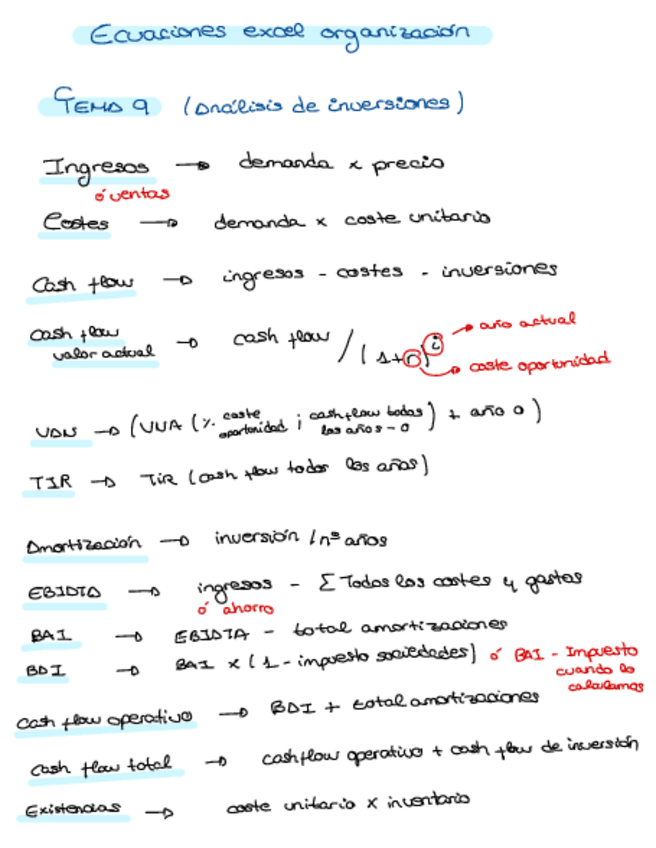 Ecuaciones excel organización
TEMA 9 (Análisis de inversiones)
Ingresos → demanda x precio
ó ventas
Costes → demanda x coste unitario
Cash flow → ingresos - costes - inversiones
Cash flow valor actual → cash flow / (1+r)^i
→ año actual
→ coste oportunidad
VAN → (VNA (% coste oportunidad ; cashflow todos los años - 0) + año 0)
TIR → TIR (cash flow todos los años)
Amortización → inversión / nº años
EBIDTA → ingresos - Σ Todos los costes y gastos
ó ahorro
BAI → EBIDTA - total amortizaciones
BDI → BAI x (1 - impuesto sociedades) ó BAI - Impuesto
cuando lo
calculamos
Cash flow operativo → BDI + total amortizaciones
Cash flow total → cashflow operativo + cash flow de inversión
Existencias → coste unitario x inventario